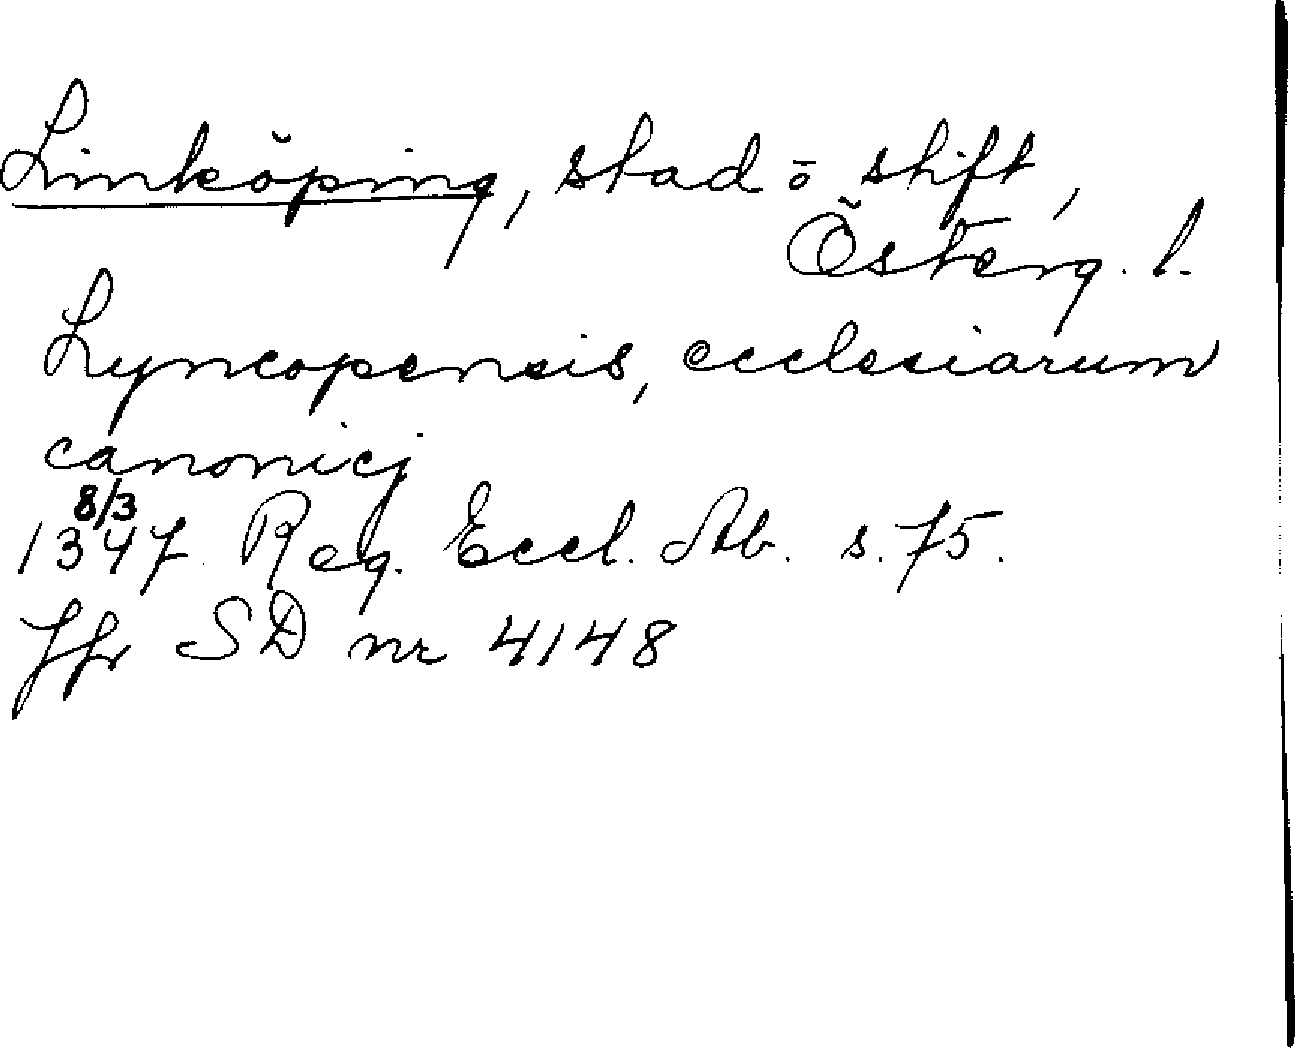 Linköping, stad o stift,
Österg. l.
Lyncopensis, ecclesiarum
canonicj
8/3
1347 Reg. Eccl. Ab. s. 75.
Jfr SD nr 4148